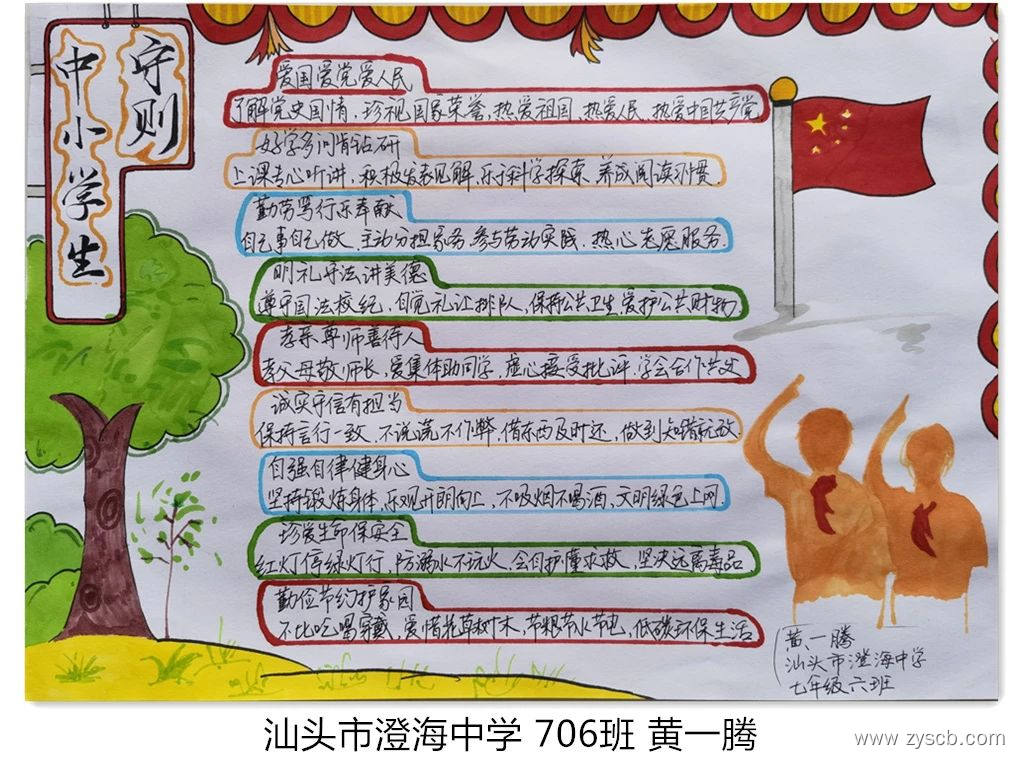 中小学生
守则
爱国爱党爱人民
了解党史国情，珍视国家荣誉，热爱祖国，热爱人民，热爱中国共产党
好学多问肯钻研
上课专心听讲，积极发表见解，乐于科学探索，养成阅读习惯．
勤劳笃行乐奉献
自己事自己做，主动分担家务，参与劳动实践，热心志愿服务．
明礼守法讲美德
遵守国法校纪，自觉礼让排队，保持公共卫生，爱护公共财物．
孝亲尊师善待人
孝父母敬师长，爱集体助同学，虚心接受批评，学会合作共处
诚实守信有担当
保持言行一致，不说谎不作弊，借东西及时还，做到知错就改
自强自律健身心
坚持锻炼身体，乐观开朗向上，不吸烟不喝酒，文明绿色上网．
珍爱生命保安全
红灯停绿灯行，防溺水不玩火，会自护懂求救，坚决远离毒品
勤俭节约护家园
不比吃喝穿戴，爱惜花草树木，节粮节水节电，低碳环保生活
黄一腾
汕头市澄海中学
七年级六班
汕头市澄海中学 706班 黄一腾
www.zyscb.com